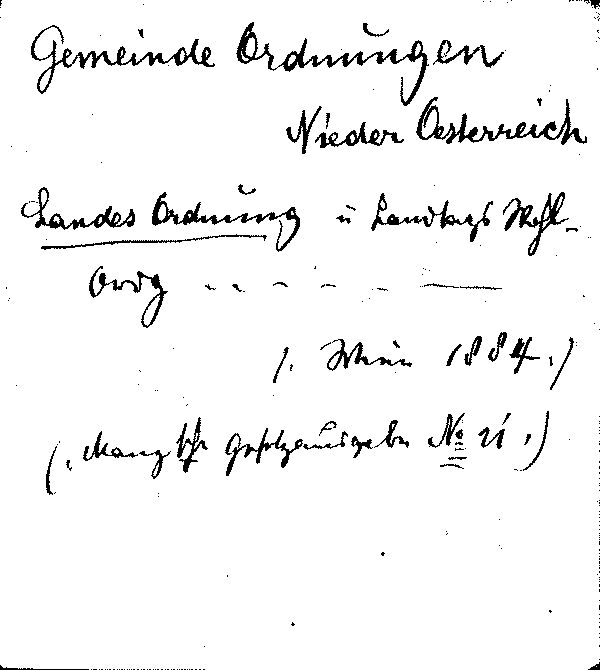 Gemeinde Ordnungen
Nieder Oesterreich
Landes Ordnung u Landtags Wahl-
Ordg - - - - - —
/. Wien 1884./
(. Manz'sche Gesetzausgabe No